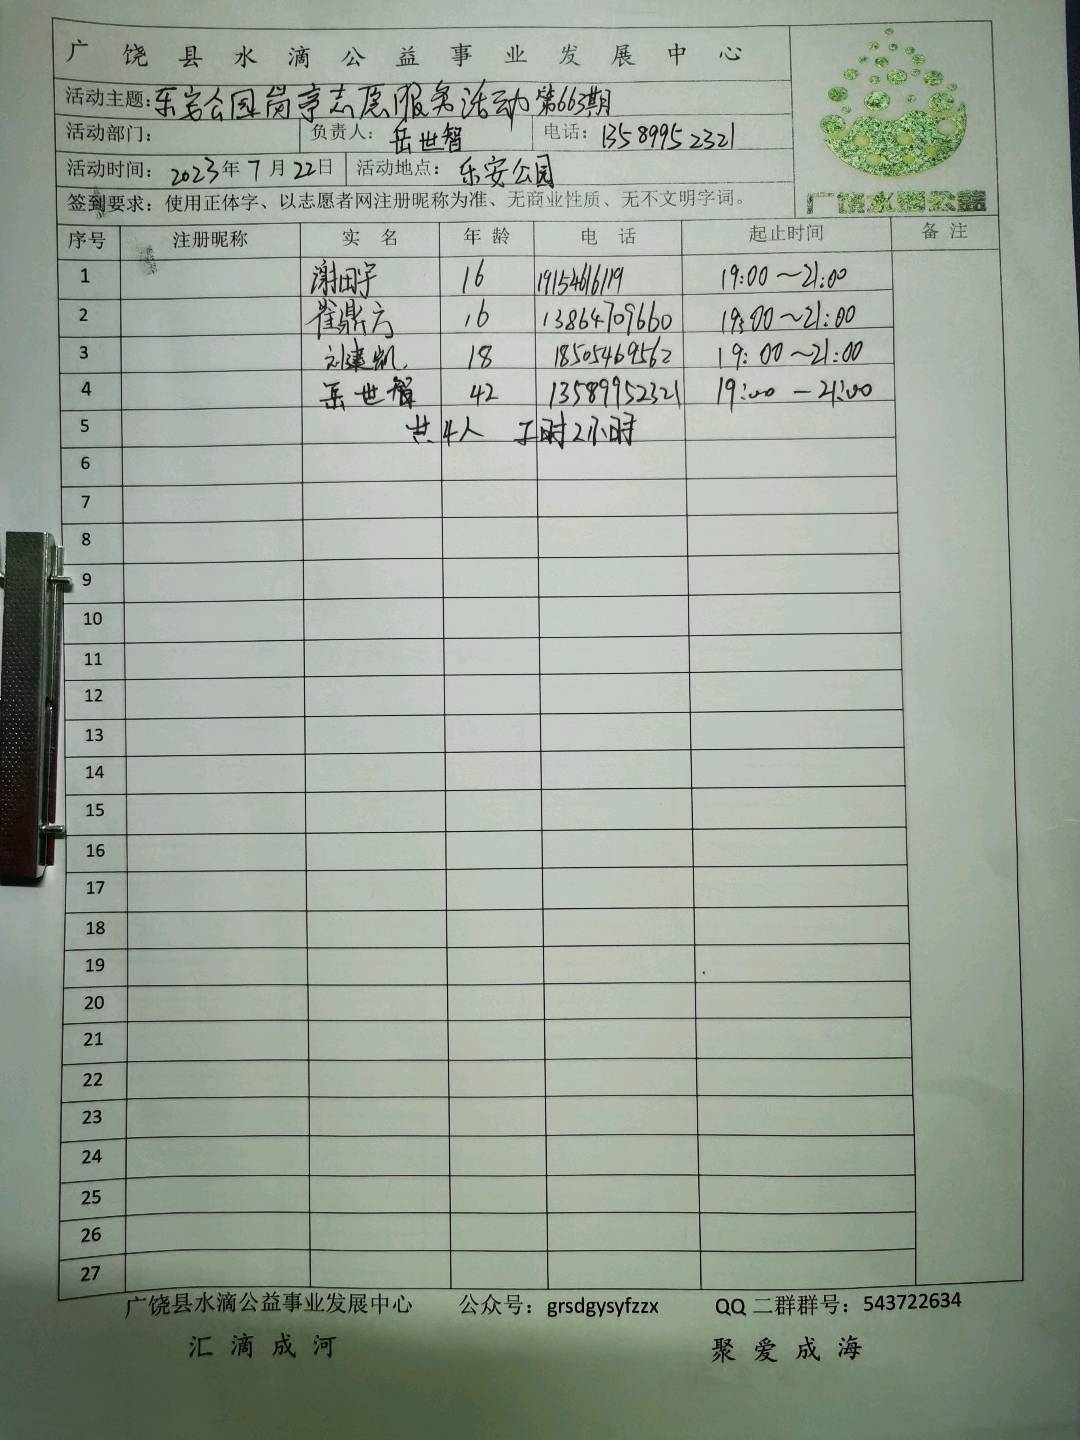 广饶县水滴公益事业发展中心
活动主题：乐安公园岗亭志愿服务活动第663期
活动部门： 负责人：岳世智 电话：13589952321
活动时间：2023年7月22日 活动地点：乐安公园
签到要求：使用正体字、以志愿者网注册昵称为准、无商业性质、无不文明字词。
广饶水滴公益
序号 注册昵称 实名 年龄 电话 起止时间 备注
1 谢田宇 16 19154616119 19:00～21:00
2 崔鼎方 16 13864709660 19:00～21:00
3 刘建凯 18 18505469562 19:00～21:00
4 岳世智 42 13589952321 19:00－21:00
5 共4人 工时2小时
6
7
8
9
10
11
12
13
14
15
16
17
18
19
20
21
22
23
24
25
26
27
广饶县水滴公益事业发展中心 公众号：grsdgysyfzzx QQ二群群号：543722634
汇滴成河 聚爱成海